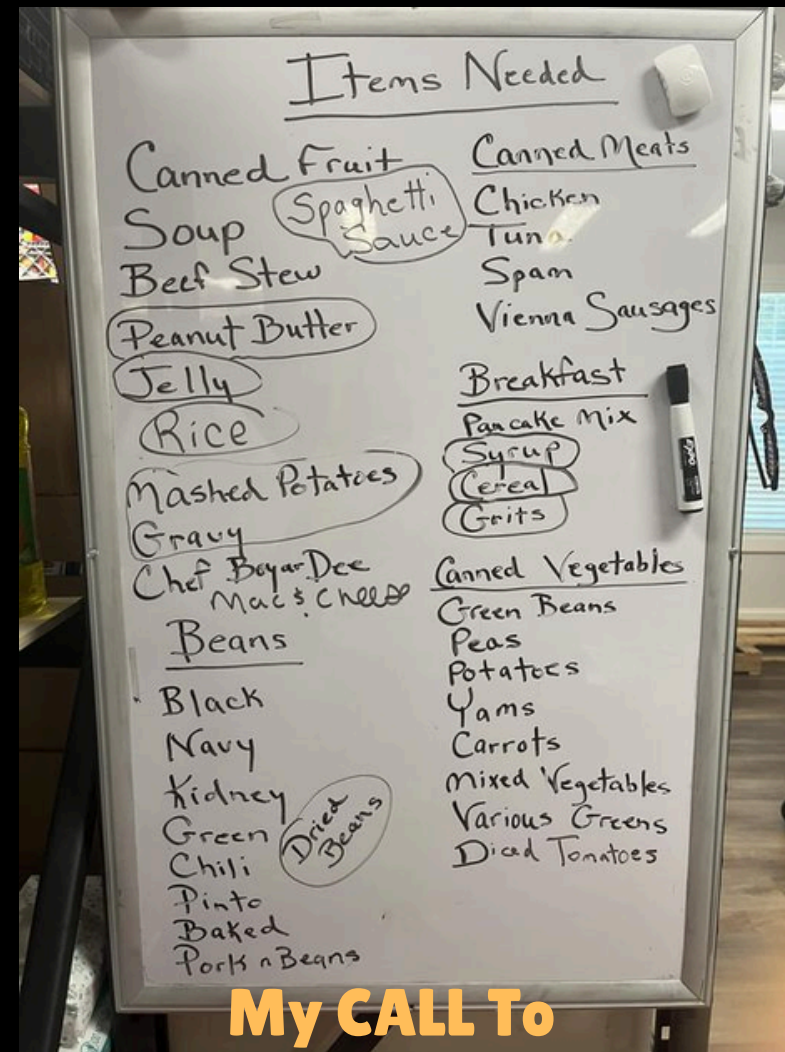 Items Needed
Canned Fruit
Spaghetti
Sauce
Soup
Beef Stew
Peanut Butter
Jelly
Rice
Mashed Potatoes
Gravy
Chef BoyarDee
Mac & Cheese
Beans
Black
Navy
Kidney
Green
Chili
Pinto
Baked
Pork n Beans
Dried
Beans
Canned Meats
Chicken
Tuna
Spam
Vienna Sausages
Breakfast
Pancake Mix
Syrup
Cereal
Grits
Canned Vegetables
Green Beans
Peas
Potatoes
Yams
Carrots
Mixed Vegetables
Various Greens
Diced Tomatoes
EXPO
My CALL To